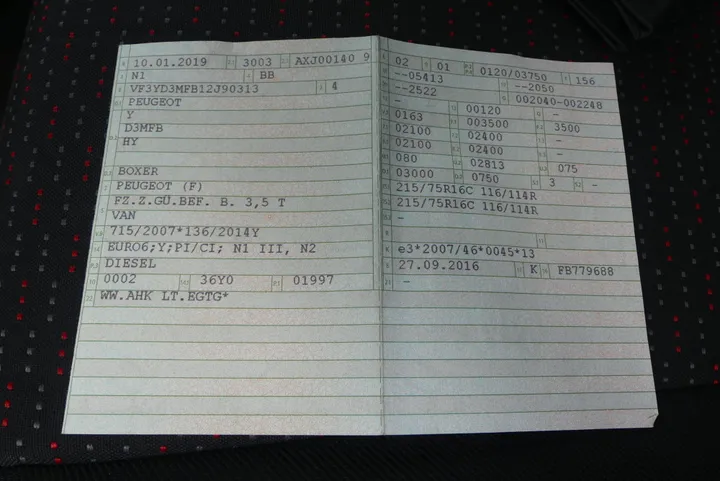 10.01.2019 3003 AXJ00140 9
N1 BB
VF3YD3MFB12J90313 4
PEUGEOT
Y
D3MFB
HY
BOXER
PEUGEOT (F)
FZ.Z.GÜ.BEF. B. 3,5 T
VAN
715/2007*136/2014Y
EURO6;Y;PI/CI; N1 III, N2
DIESEL
0002 36Y0 01997
WW.AHK LT.EGTG*
02 01 0120/03750 156
--05413 --2050
--2522 002040-002248
- 00120 -
0163 003500 3500
02100 02400 -
02100 02400 -
080 02813 075
03000 0750 3 -
215/75R16C 116/114R
215/75R16C 116/114R
-
e3*2007/46*0045*13
27.09.2016 K FB779688
-